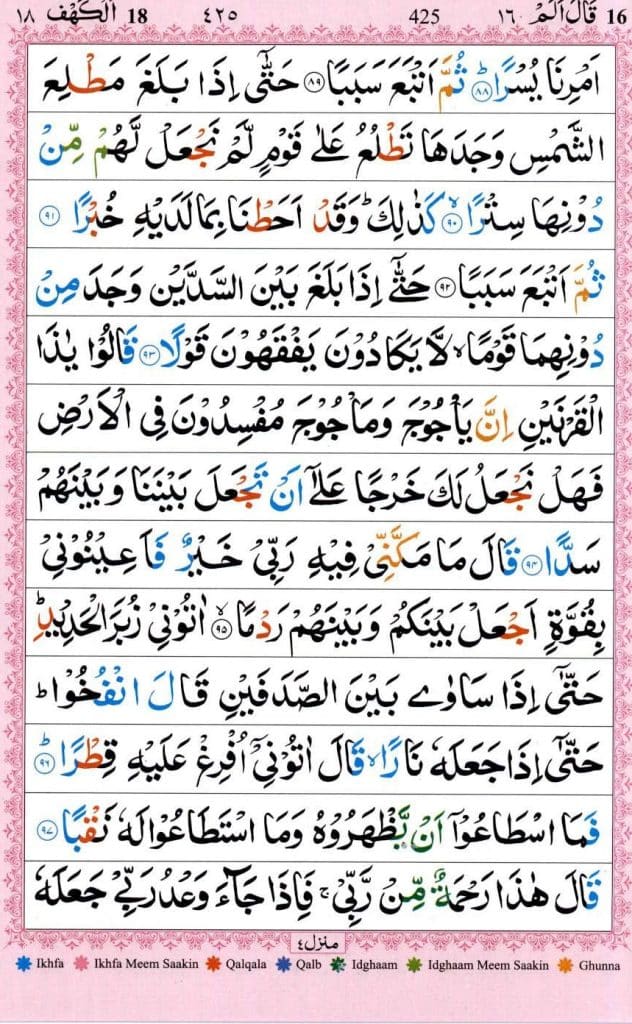 16 قَالَ اَلَمْ ١٦ 425 ٤٢٥ 18 اَلْكَهْف ١٨
اَمْرِنَا يُسْرًا ؕ‏﴿۸۸﴾ ثُمَّ اَتْبَعَ سَبَبًا ﴿۸۹﴾ حَتّٰۤی اِذَا بَلَغَ مَطْلِعَ
الشَّمْسِ وَجَدَهَا تَطْلُعُ عَلٰی قَوْمٍ لَّمْ نَجْعَلْ لَّهُمْ مِّنْ
دُوْنِهَا سِتْرًا ۙ‏﴿۹۰﴾ كَذٰلِكَ ؕ وَقَدْ اَحَطْنَا بِمَا لَدَیْهِ خُبْرًا ﴿۹۱﴾
ثُمَّ اَتْبَعَ سَبَبًا ﴿۹۲﴾ حَتّٰۤی اِذَا بَلَغَ بَیْنَ السَّدَّیْنِ وَجَدَ مِنْ
دُوْنِهِمَا قَوْمًا ۙ لَّا یَكَادُوْنَ یَفْقَهُوْنَ قَوْلًا ﴿۹۳﴾ قَالُوْا یٰذَا
الْقَرْنَیْنِ اِنَّ یَاْجُوْجَ وَمَاْجُوْجَ مُفْسِدُوْنَ فِی الْاَرْضِ
فَهَلْ نَجْعَلُ لَكَ خَرْجًا عَلٰۤی اَنْ تَجْعَلَ بَیْنَنَا وَبَیْنَهُمْ
سَدًّا ﴿۹۴﴾ قَالَ مَا مَكَّنِّیْ فِیْهِ رَبِّیْ خَیْرٌ فَاَعِیْنُوْنِیْ
بِقُوَّةٍ اَجْعَلْ بَیْنَكُمْ وَبَیْنَهُمْ رَدْمًا ۙ‏﴿۹۵﴾ اٰتُوْنِیْ زُبَرَ الْحَدِیْدِ ؕ
حَتّٰۤی اِذَا سَاوٰی بَیْنَ الصَّدَفَیْنِ قَالَ انْفُخُوْا ؕ
حَتّٰۤی اِذَا جَعَلَهٗ نَارًا ۙ قَالَ اٰتُوْنِیْۤ اُفْرِغْ عَلَیْهِ قِطْرًا ؕ‏﴿۹۶﴾
فَمَا اسْطَاعُوْۤا اَنْ یَّظْهَرُوْهُ وَمَا اسْتَطَاعُوْا لَهٗ نَقْبًا ﴿۹۷﴾
قَالَ هٰذَا رَحْمَةٌ مِّنْ رَّبِّیْ ۚ فَاِذَا جَآءَ وَعْدُ رَبِّیْ جَعَلَهٗ
منزل ٤
Ikhfa Ikhfa Meem Saakin Qalqala Qalb Idghaam Idghaam Meem Saakin Ghunna